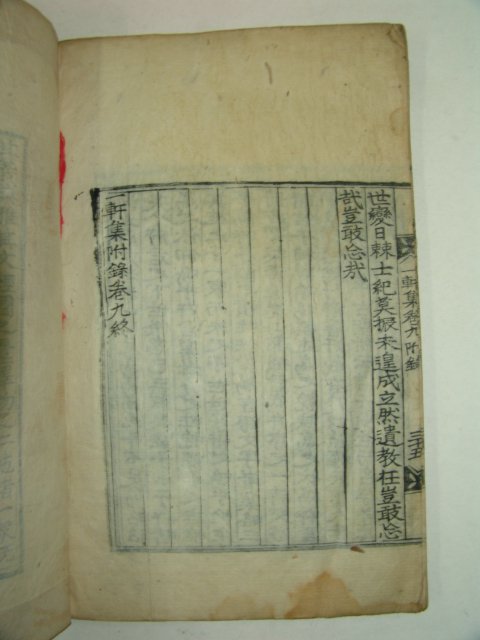 一軒集卷九附錄 三十五
世變日棘士紀莫振未遑成立然遺教在豈敢忘
哉豈敢忘哉
一軒集附錄卷九終